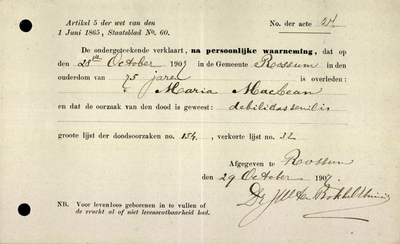 Artikel 5 der wet van den
1 Juni 1865, Staatsblad No. 60.
No. der acte 24
De ondergeteekende verklaart, na persoonlijke waarneming, dat op
den 28ste October 1907 in de Gemeente Rossum in den
ouderdom van 75 jaren is overleden:
Maria MacLean
en dat de oorzaak van den dood is geweest: debilitas senilis
groote lijst der doodsoorzaken no. 154, verkorte lijst no. 32
Afgegeven te Rossum
den 29 October 1907.
Dr
NB. Voor levenloos geborenen in te vullen of
de vrucht al of niet levensvatbaarheid had.